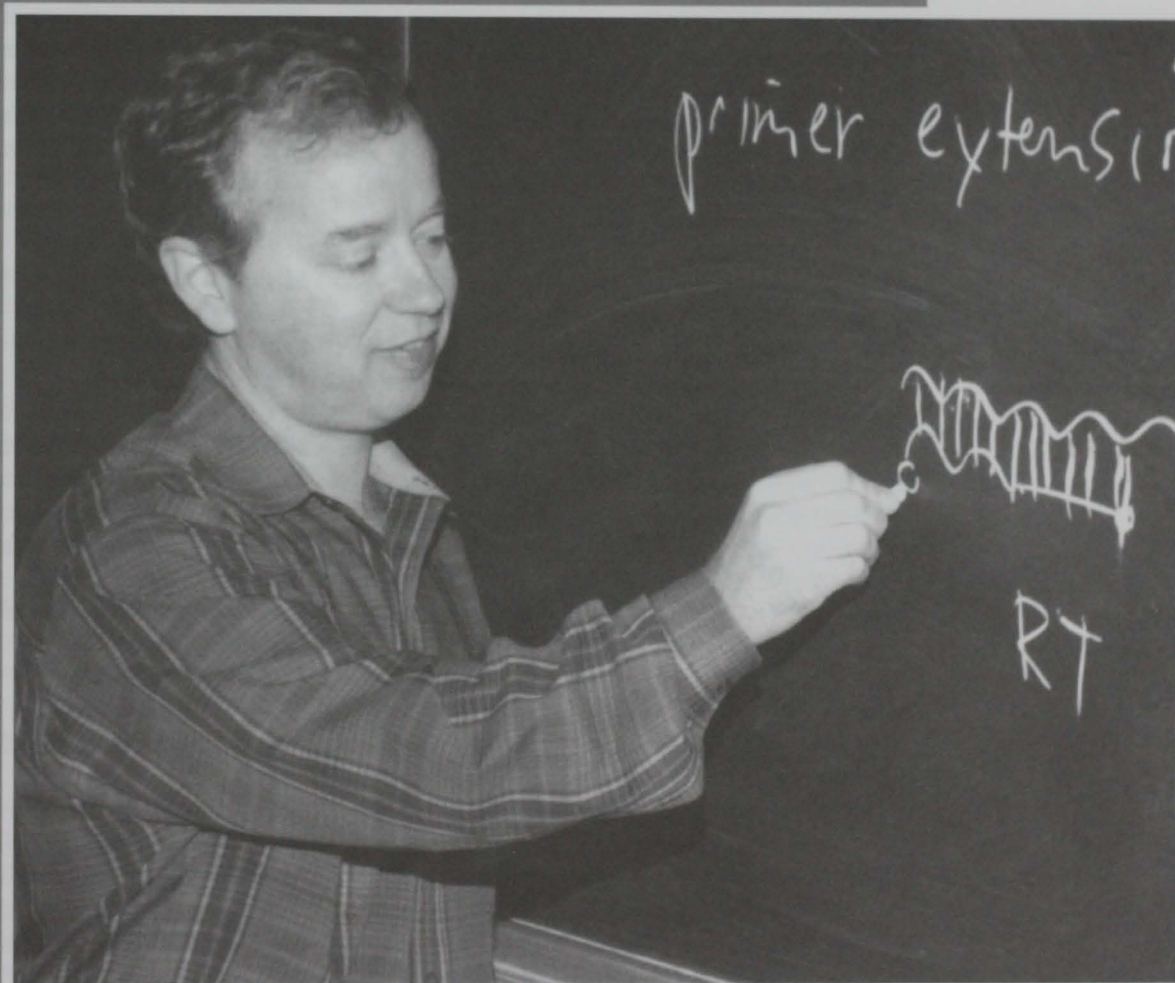 primer extensin
RT